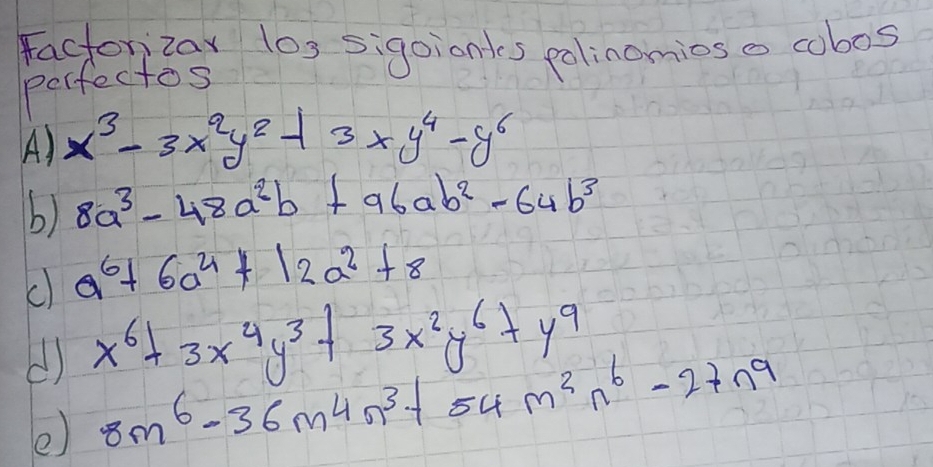 Factorizar los sigoientes polinomios o cobos
perfectos
A) x³ - 3x²y² + 3xy⁴ - y⁶
b) 8a³ - 48a²b + 96ab² - 64b³
c) a⁶ + 6a⁴ + 12a² + 8
d) x⁶ + 3x⁴y³ + 3x²y⁶ + y⁹
e) 8m⁶ - 36m⁴n³ + 54m²n⁶ - 27n⁹